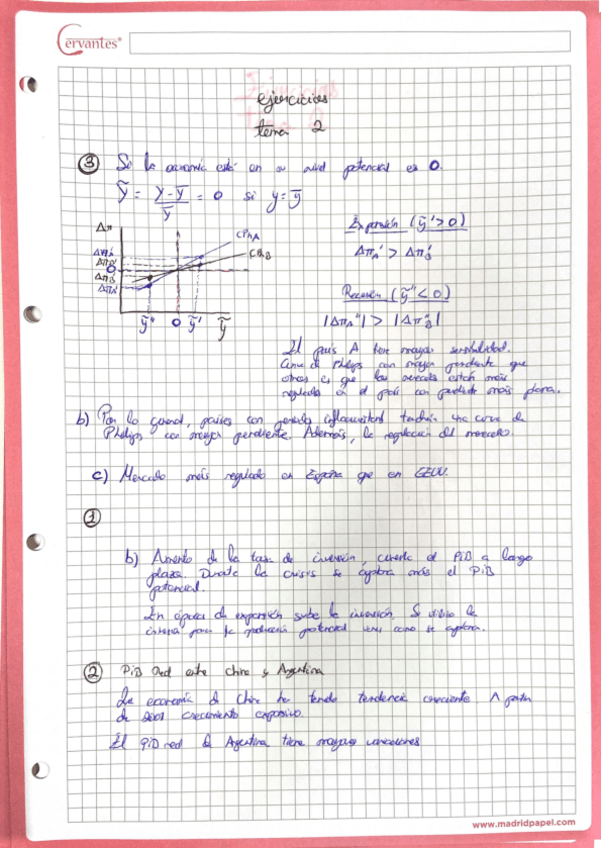 Cervantes®
ejercicios
tema 2
③ Si la economía está en su nivel potencial es 0.
Ỹ = Y - Ȳ / Ȳ = 0 si y = ȳ
Δπ
CPhA
CPhB
ΔπA'
ΔπB'
0
ΔπB''
ΔπA''
ỹ'' 0 ỹ' ỹ
Expansión (ỹ' > 0)
ΔπA' > ΔπB'
Recesión (ỹ'' < 0)
|ΔπA''| > |ΔπB''|
El país A tiene mayor sensibilidad.
Curva de Philips con mayor pendiente que
otras es que los mercados están más
regulados en el país con pendiente más plana.
b) Por lo general, países con generales inflacionistas tendrán una curva de
Philips con mayor pendiente. Además, la regulación del mercado.
c) Mercado más regulado en España que en EEUU.
①
b) Aumento de la tasa de inversión, aumenta el PiB a largo
plazo. Durante la crisis se el PiB
potencial.
En épocas de expansión sube la inversión. Si utilizo la
para la producción potencial como se
② PiB Real entre china y Argentina
La economía de China ha tenido tendencia creciente A partir
de 2001 crecimiento expansivo.
El PiB real de Argentina tiene mayores variaciones
www.madridpapel.com